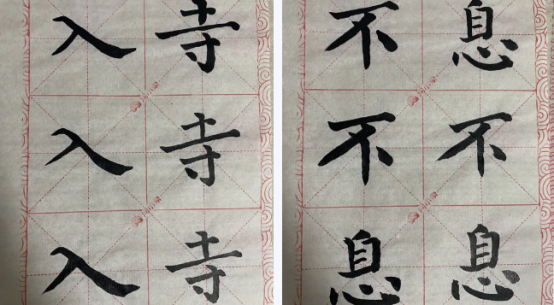 入 寺
入 寺
入 寺
不 息
不 不
息 息